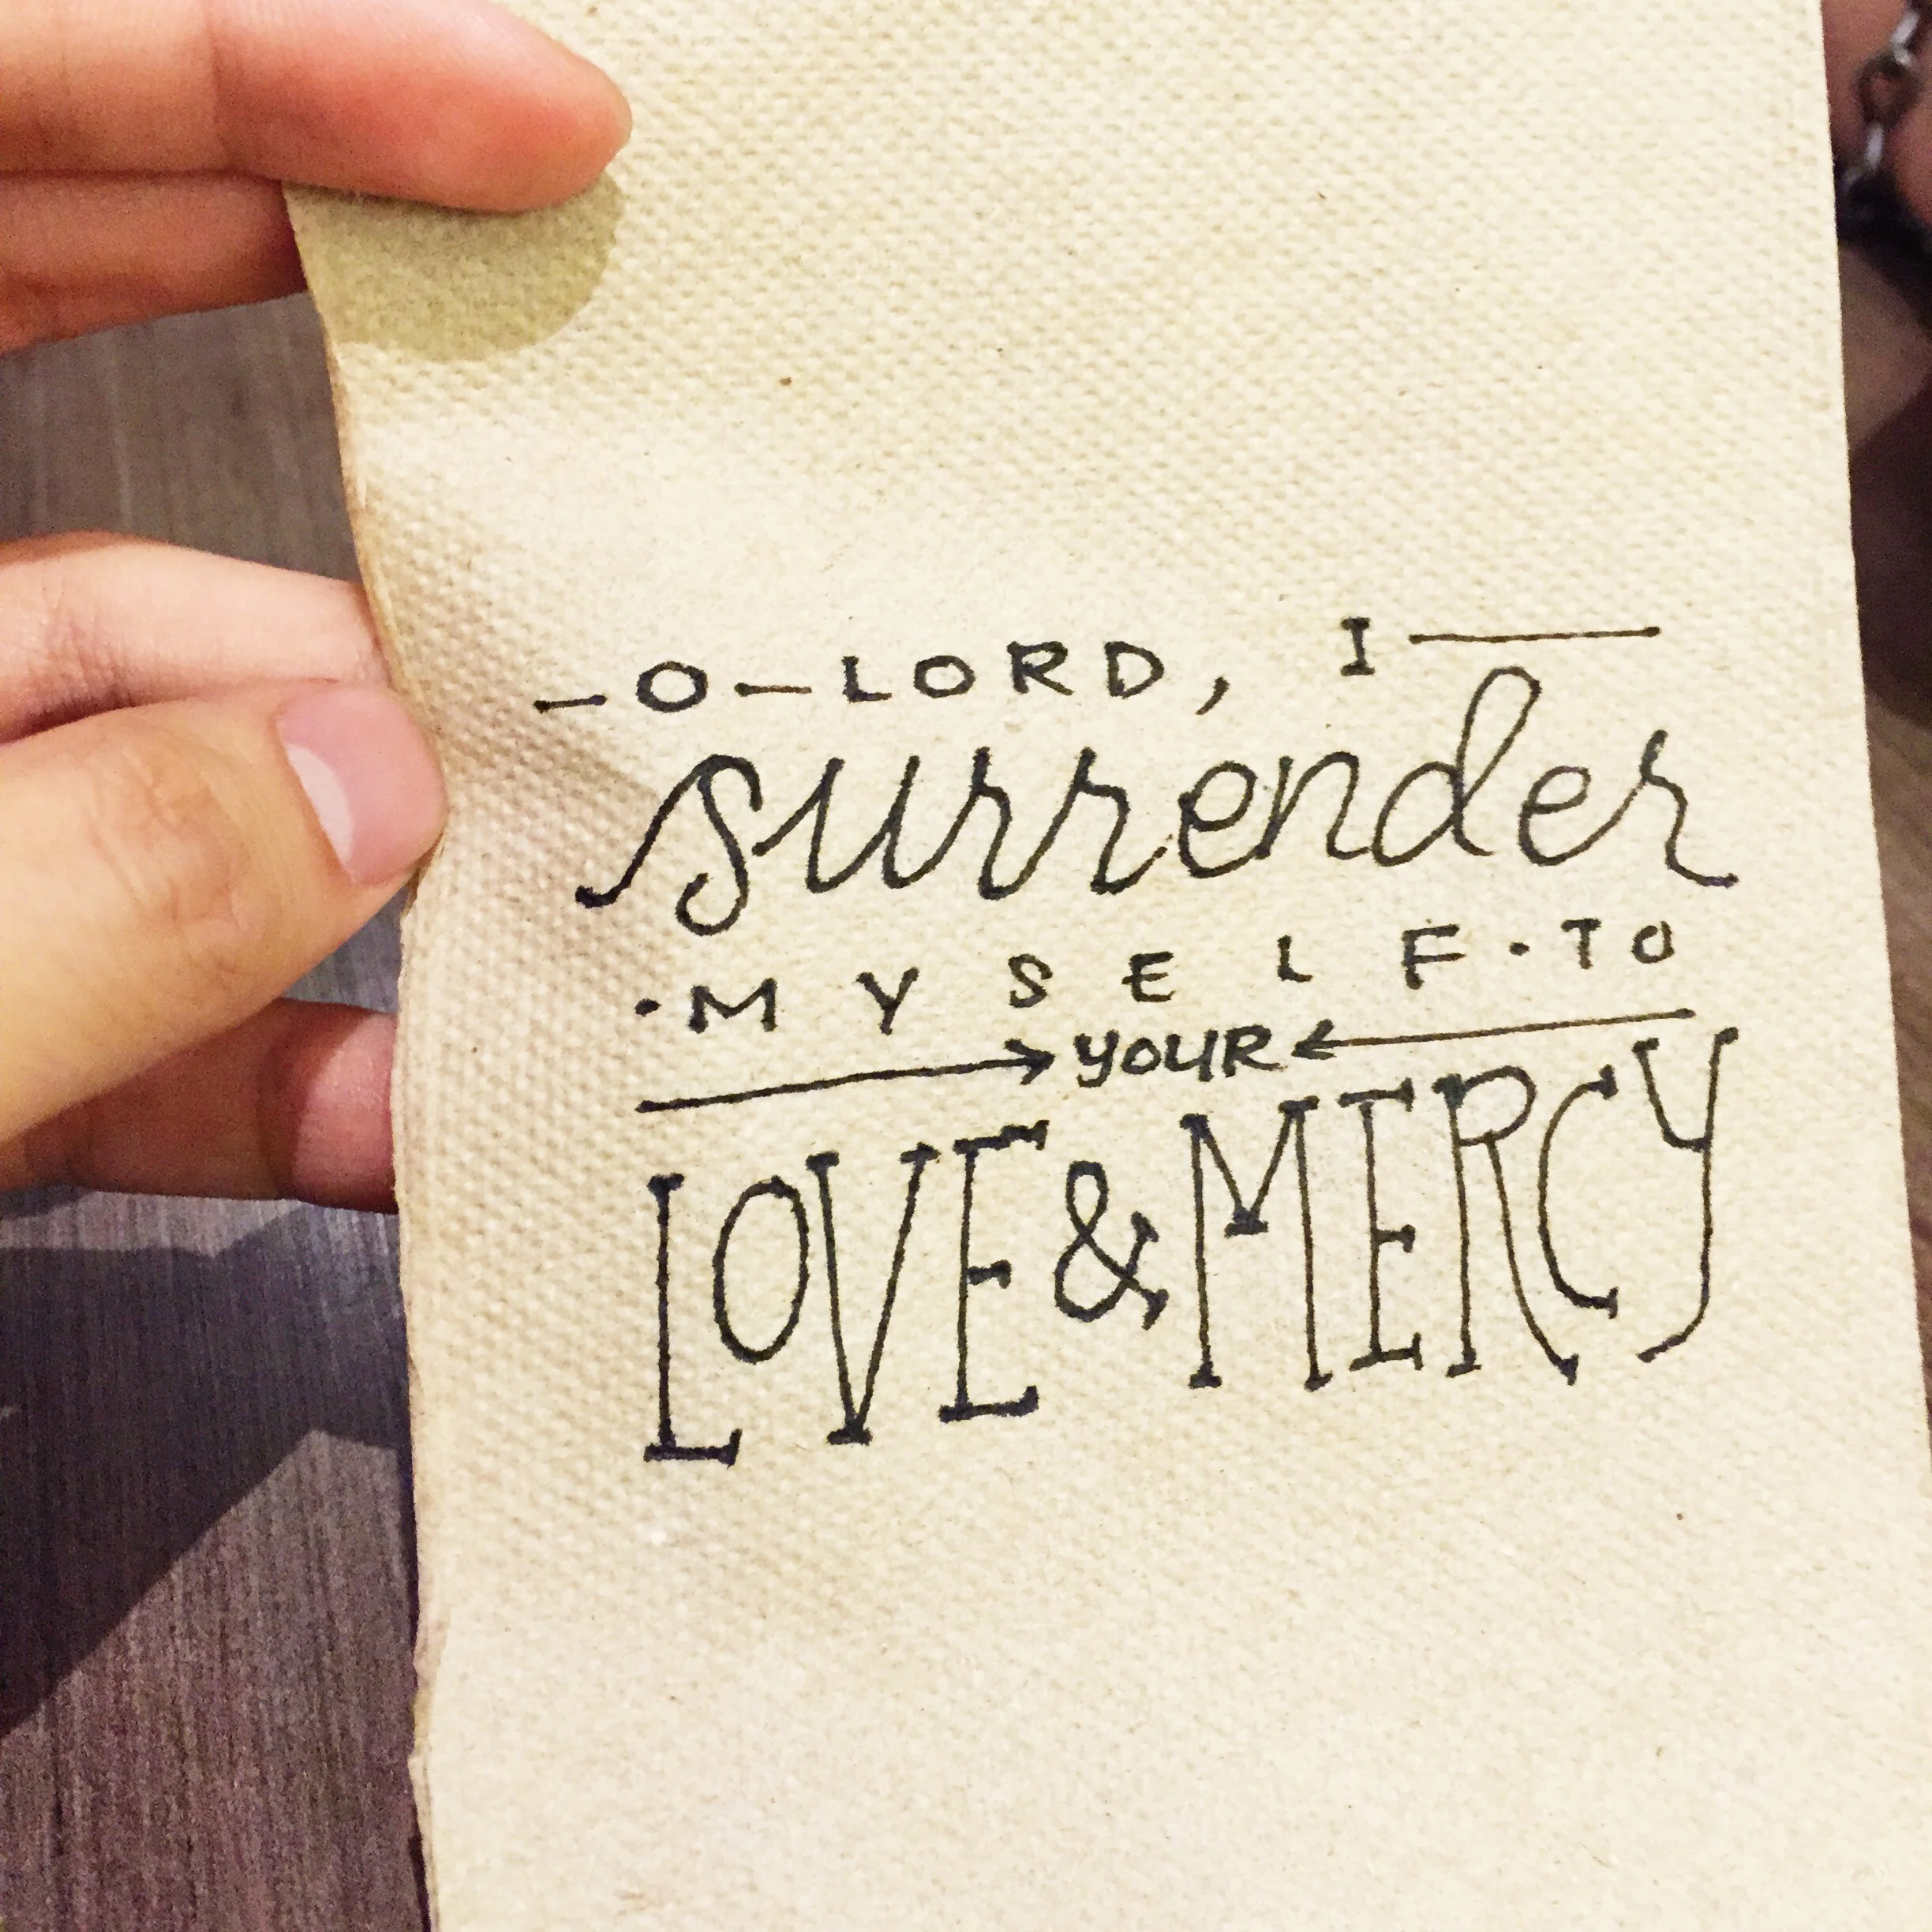 O LORD, I
surrender
·MYSELF·TO
→YOUR←
LOVE & MERCY